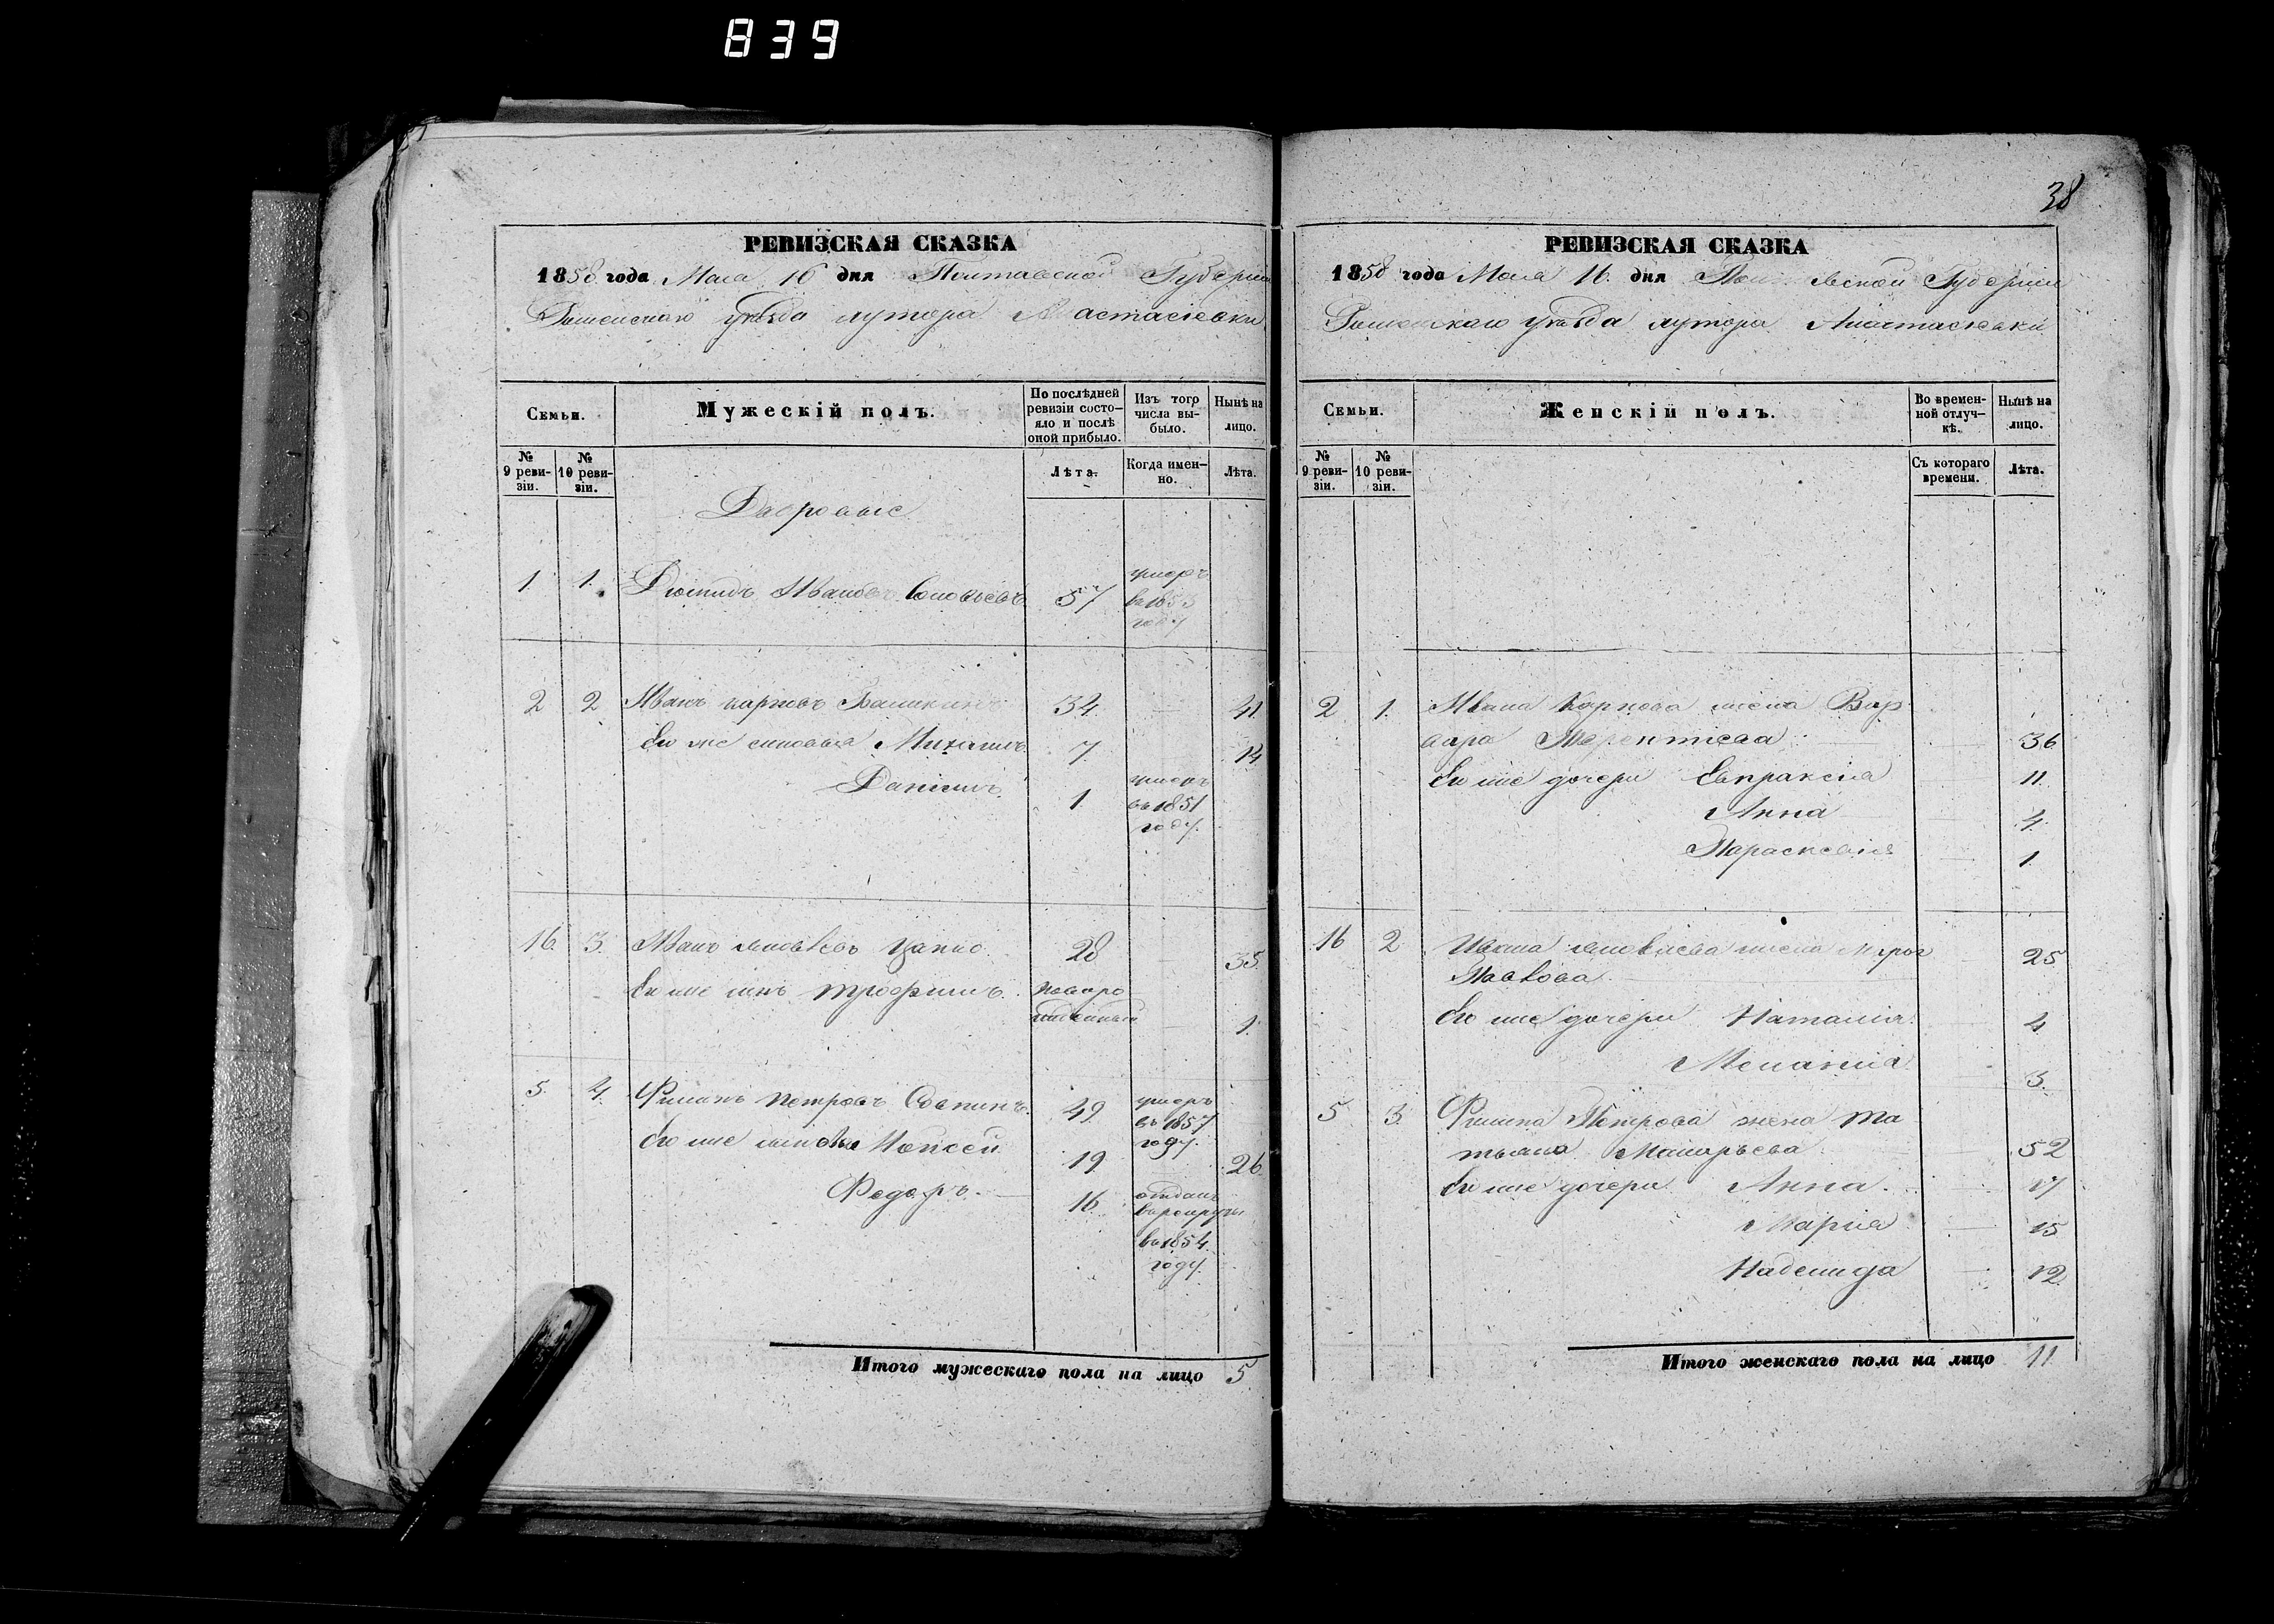 839
РЕВИЗСКАЯ СКАЗКА
1858 года Мая 16 дня Полтавской Губерніи
уѣзда хутора Анастасіевки
Семьи.
Мужескій полъ.
По послѣдней ревизіи состо-
яло и послѣ
оной прибыло.
Изъ того
числа вы-
было.
Нынѣ на
лицо.
№
9 реви-
зіи.
№
10 реви-
зіи.
Лѣта.
Когда имен-
но.
Лѣта.
Дворовые
1. 1. Иванов 57 умеръ
въ 1853
году
2 2 Иванъ карповъ 34 41
Его же сыновья Михаилъ 7. 14
Данiилъ 1 умеръ
въ 1851
году.
16. 3. Иванъ 28 35
Его же сынъ трофимъ. новоро
жденный 1.
5. 4. Филипъ петровъ 49 умеръ
въ 1857
году.
Его же сыновья Моисей 19 26
Федоръ 16 отданъ
в рекруты
въ 1854
году.
Итого мужескаго пола на лицо 5
38
РЕВИЗСКАЯ СКАЗКА
1858 года Мая 16. дня Губерніи
уѣзда хутора Анастасіевки
Семьи.
Женскій полъ.
Во времен-
ной отлуч-
кѣ.
Нынѣ на
лицо.
№
9 реви-
зіи.
№
10 реви-
зіи.
Съ котораго
времени.
Лѣта.
2 1. Ивана Карпова жена Вар
вара 36
Его же дочери Евпраксія 11.
Анна 4.
Параскевія 1.
16 2 Ивана жена
Павлова 25
Его же дочери Наталія 4
Меланія 3.
5 3. Филипа Петрова жена Та
тьяна 52
Его же дочери Анна 17
Марія 15
Надежда 12
Итого женскаго пола на лицо 11